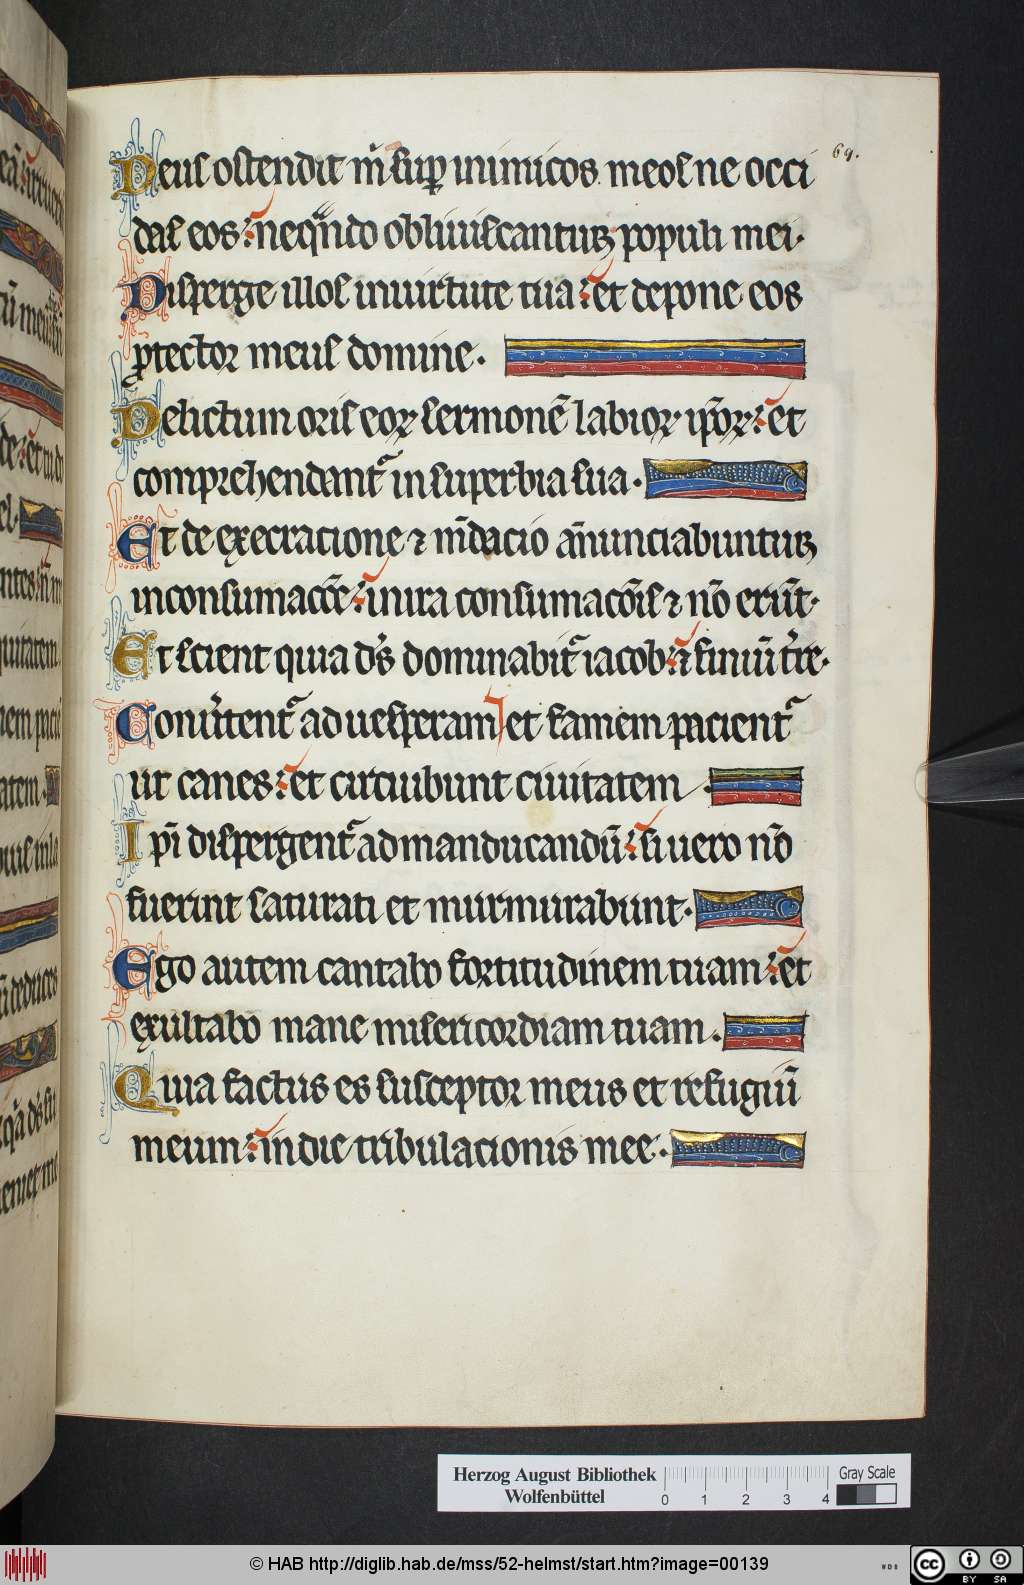 69.
Deus ostendit m̄ sup̱ inimicos meos ne occi
das eos: neqn̄do obliuiscantur populi mei.
Disperge illos in uirtute tua: et depone eos
ꝓtector meus domine.
Delictum oris eoꝝ sermonē labioꝝ ip̄oꝝ: et
comprehendant᷑ in superbia sua.
Et de execracione ⁊ m̄dacio ān̄unciabuntur
in consumac̄c̄e: in ira consumac̄ōis ⁊ nō erūt.
Et scient quia d̄s dominabit᷑ iacob: ⁊ finiū t̄re.
Conu̓tent᷑ ad uesperam et famem pacient᷑
ut canes: et circuibunt ciuitatem
Ipī dispergent᷑ ad manducandū: si uero nō
fuerint saturati et murmurabunt.
Ego autem cantabo fortitudinem tuam: et
exultabo mane misericordiam tuam.
Quia factus es susceptor meus et refugiū
meum: in die tribulacionis mee.
Herzog August Bibliothek
Wolfenbüttel
0 1 2 3 4
Gray Scale
© HAB http://diglib.hab.de/mss/52-helmst/start.htm?image=00139
WDB
cc BY SA